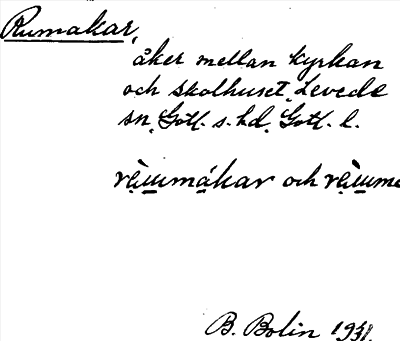 Rumakar,
åker mellan kyrkan
och skolhuset, Levede
sn, Gotl. s. hd, Gotl. l.
och
B. Bolin 1931.